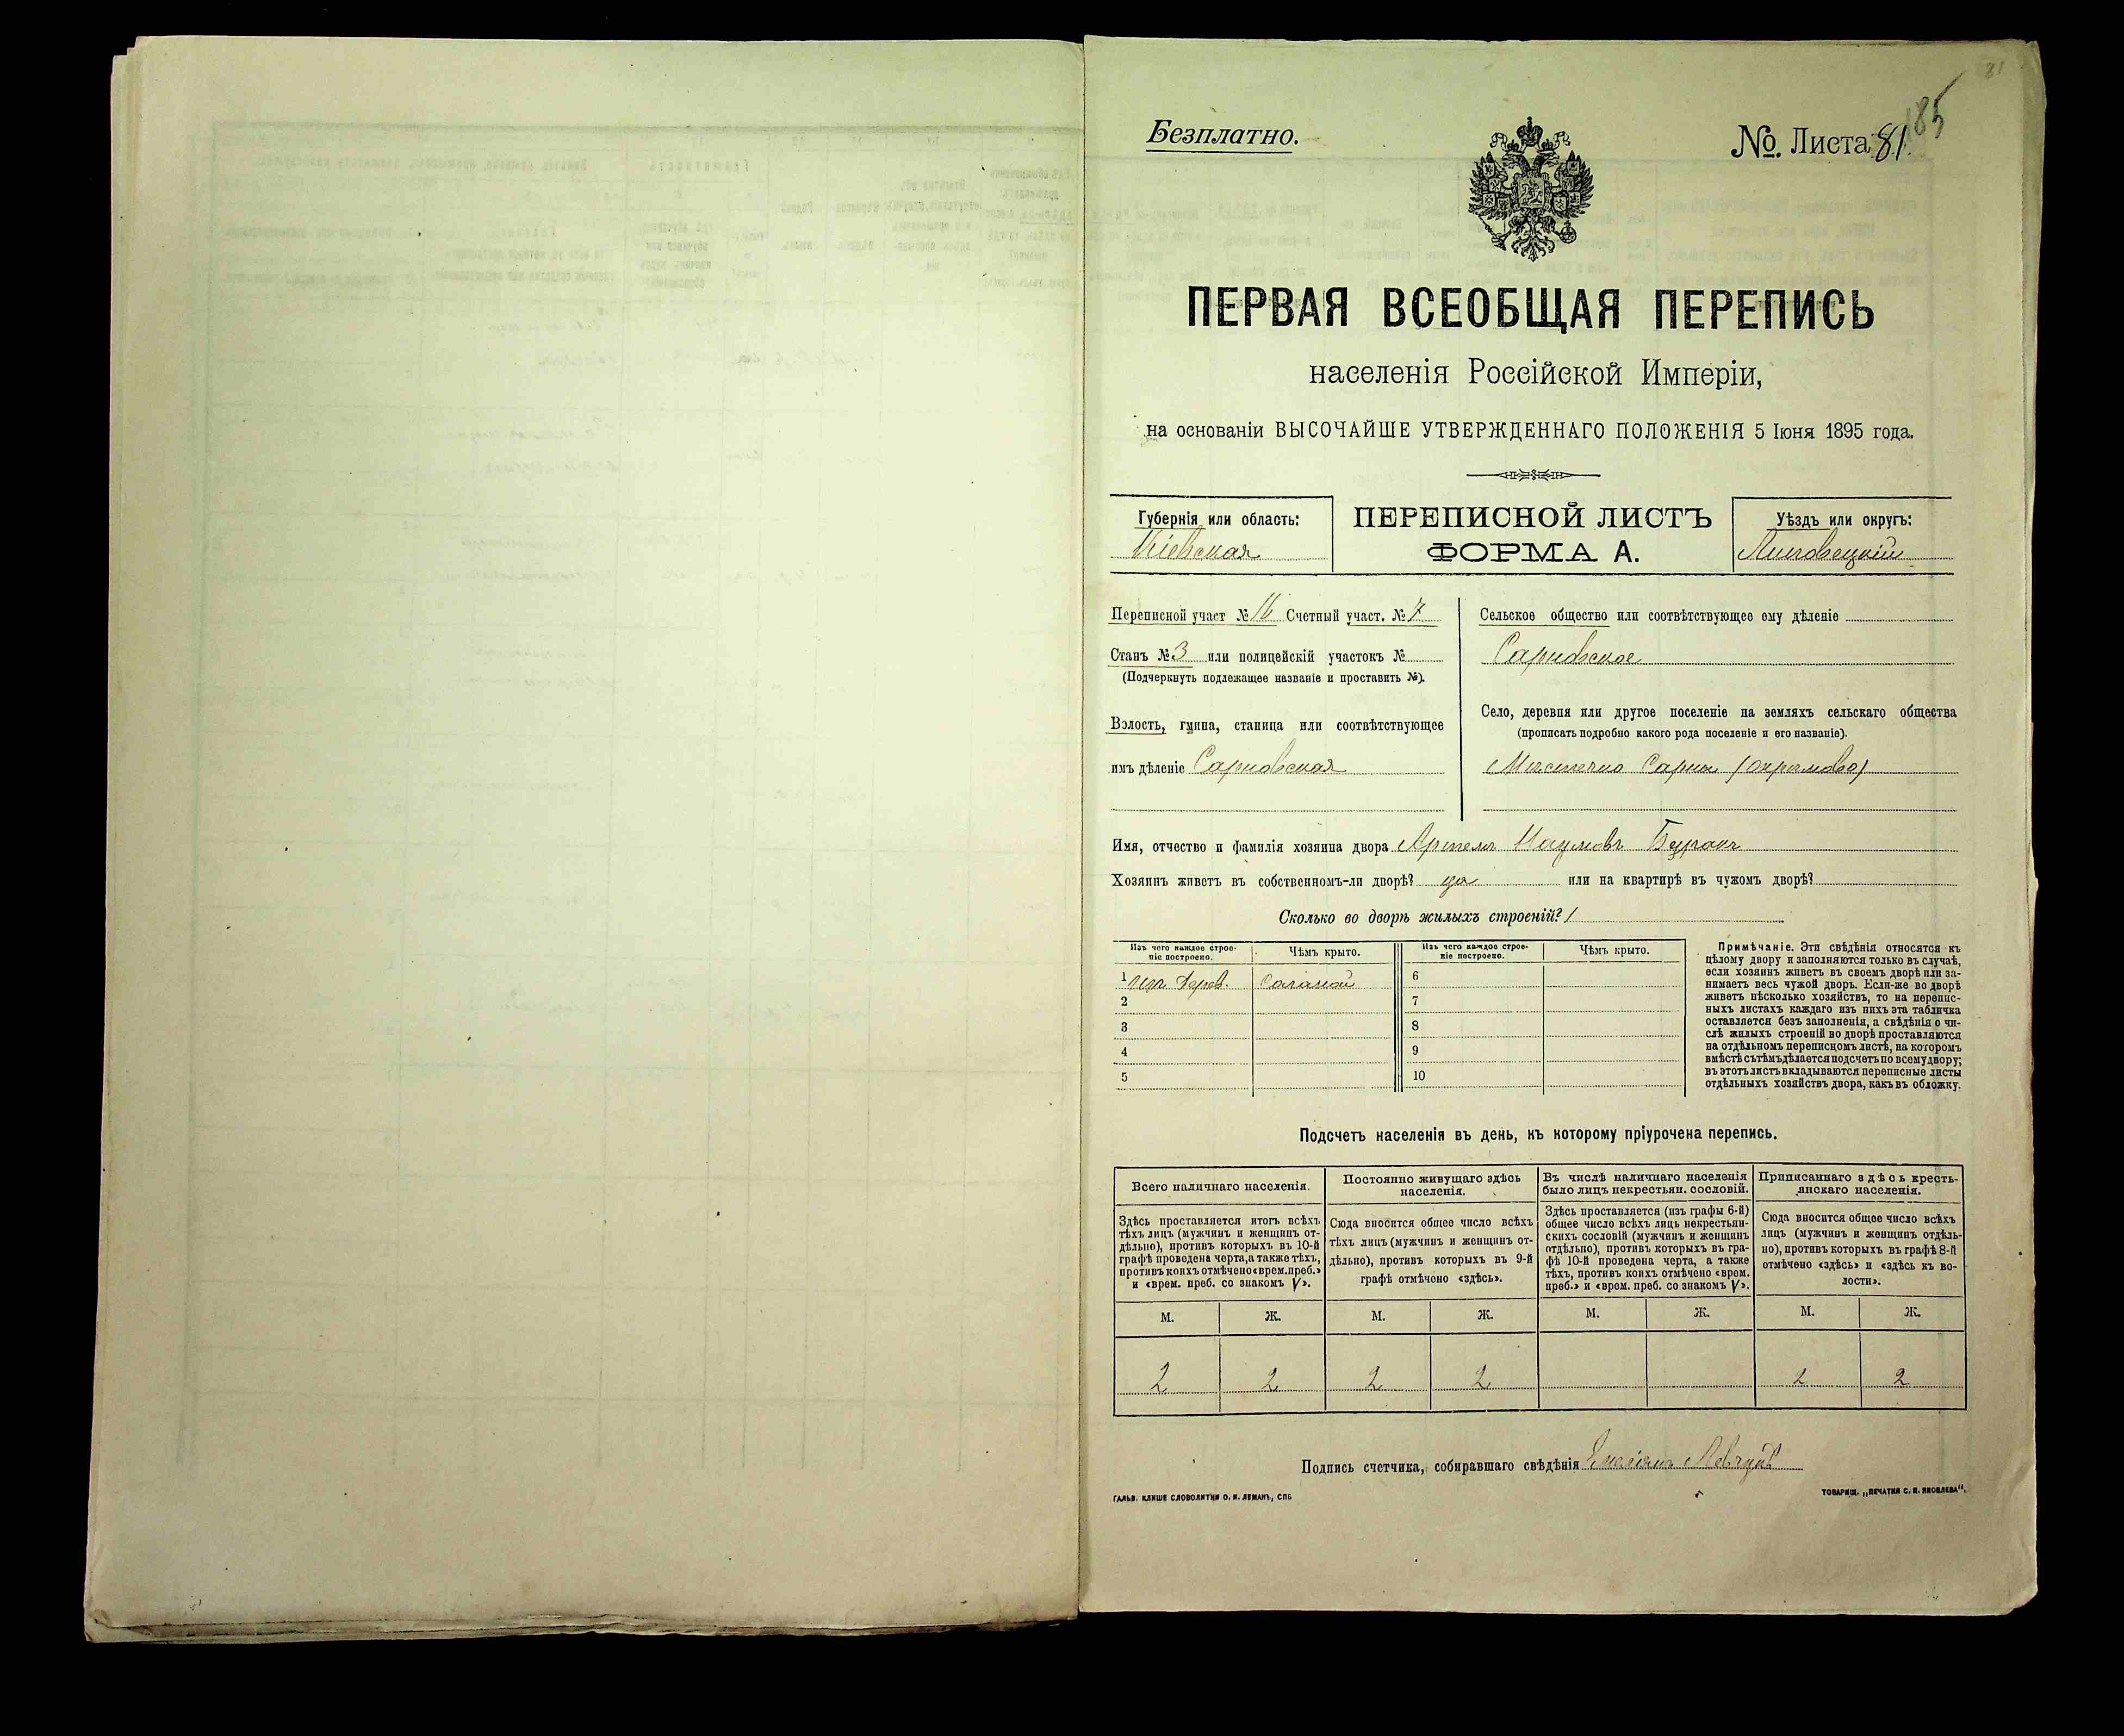 81
185
Безплатно.
№. Листа 81.
ПЕРВАЯ ВСЕОБЩАЯ ПЕРЕПИСЬ
населенія Россійской Имперіи,
на основаніи ВЫСОЧАЙШЕ УТВЕРЖДЕННАГО ПОЛОЖЕНІЯ 5 Іюня 1895 года.
Губернія или область:
Кіевская
ПЕРЕПИСНОЙ ЛИСТЪ
ФОРМА А.
Уѣздъ или округъ:
Липовецкій
Переписной участ № 16 Счетный участ. № 7
Станъ № 3 или полицейскій участокъ №
(Подчеркнуть подлежащее названіе и проставить №).
Волость, гмина, станица или соотвѣтствующее
имъ дѣленіе Сарновская
Сельское общество или соотвѣтствующее ему дѣленіе
Сарновское
Село, деревня или другое поселеніе на земляхъ сельскаго общества
(прописать подробно какого рода поселеніе и его названіе).
Мѣстечко Сарны
Имя, отчество и фамилія хозяина двора Артемъ Наумовъ Буракъ
Хозяинъ живетъ въ собственномъ-ли дворѣ? да или на квартирѣ въ чужомъ дворѣ?
Сколько во дворѣ жилыхъ строеній? 1
Изъ чего каждое строе-
ніе построено.
Чѣмъ крыто.
Изъ чего каждое строе-
ніе построено.
Чѣмъ крыто.
1 изъ Дерев. Соломой 6
2 7
3 8
4 9
5 10
Примѣчаніе. Эти свѣдѣнія относятся къ
цѣлому двору и заполняются только въ случаѣ,
если хозяинъ живетъ въ своемъ дворѣ или за-
нимаетъ весь чужой дворъ. Если-же во дворѣ
живетъ нѣсколько хозяйствъ, то на перепис-
ныхъ листахъ каждаго изъ нихъ эта табличка
оставляется безъ заполненія, а свѣдѣнія о чи-
слѣ жилыхъ строеній во дворѣ проставляются
на отдѣльномъ переписномъ листѣ, на которомъ
вмѣстѣ съ тѣмъ дѣлается подсчетъ по всему двору;
въ этотъ листъ вкладываются переписные листы
отдѣльныхъ хозяйствъ двора, какъ въ обложку.
Подсчетъ населенія въ день, къ которому пріурочена перепись.
Всего наличнаго населенія.
Здѣсь проставляется итогъ всѣхъ
тѣхъ лицъ (мужчинъ и женщинъ от-
дѣльно), противъ которыхъ въ 10-й
графѣ проведена черта, а также тѣхъ,
противъ коихъ отмѣчено «врем. преб.»
и «врем. преб. со знакомъ V».
Постоянно живущаго здѣсь
населенія.
Сюда вносится общее число всѣхъ
тѣхъ лицъ (мужчинъ и женщинъ от-
дѣльно), противъ которыхъ въ 9-й
графѣ отмѣчено «здѣсь».
Въ числѣ наличнаго населенія
было лицъ некрестьян. сословій.
Здѣсь проставляется (изъ графы 6-й)
общее число всѣхъ лицъ некрестьян-
скихъ сословій (мужчинъ и женщинъ
отдѣльно), противъ которыхъ въ гра-
фѣ 10-й проведена черта, а также
тѣхъ, противъ коихъ отмѣчено «врем.
преб.» и «врем. преб. со знакомъ V».
Приписаннаго здѣсь кресть-
янскаго населенія.
Сюда вносится общее число всѣхъ
лицъ (мужчинъ и женщинъ отдѣль-
но), противъ которыхъ въ графѣ 8-й
отмѣчено «здѣсь» и «здѣсь къ во-
лости».
М. Ж. М. Ж. М. Ж. М. Ж.
2 2 2 2 2 2
Подпись счетчика, собиравшаго свѣдѣнія
ГАЛЬВ. КЛИШЕ СЛОВОЛИТНИ О. И. ЛЕМАНЪ, СПБ
ТОВАРИЩ. „ПЕЧАТНЯ С. П. ЯКОВЛЕВА".